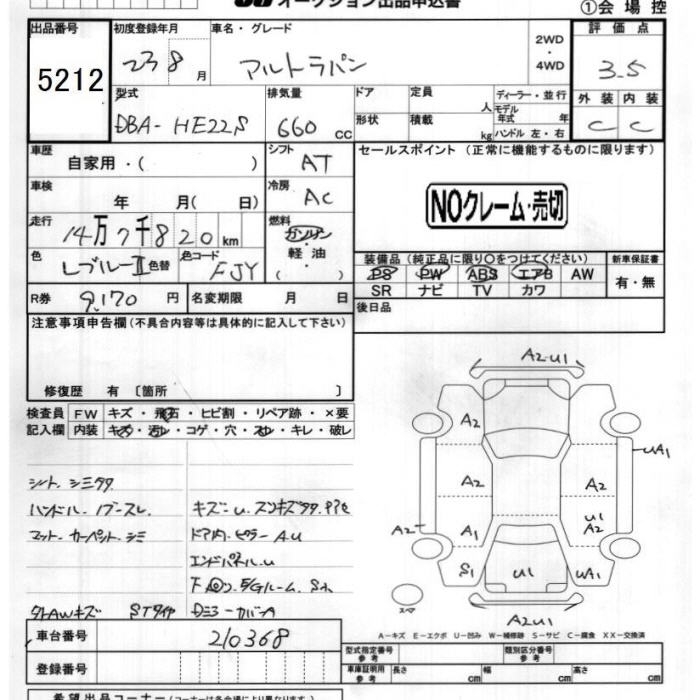 オークション出品申込書
①会場控
出品番号
5212
初度登録年月
23 8月
車名・グレード
アルトラパン
2WD・4WD
評価点
3.5
外装 内装
C C
型式
DBA-HE22S
排気量
660cc
ドア
形状
定員 人
積載 kg
ディーラー・並行
モデル年式 年
ハンドル 左・右
車歴
自家用・( )
シフト
AT
セールスポイント (正常に機能するものに限ります)
NOクレーム・売切
車検
年 月( 日)
冷房
AC
走行
14万7千820km
燃料
ガソリン
軽油
色
Lブルー II 色替
色コード
FJY
装備品(純正品に限り○をつけてください)
新車保証書
PS PW ABS エアB AW
SR ナビ TV カワ
有・無
R券 9,170円
名変期限 月 日
後日品
注意事項申告欄(不具合内容等は具体的に記入して下さい)
修復歴 有〔箇所 〕
検査員記入欄
FW キズ・飛石・ヒビ割・リペア跡・×要
内装 キズ・汚レ・コゲ・穴・スレ・キレ・破レ
シート シミ
ハンドル
マット カーペット シミ
キズ-U
ドア内 ピラー A.U
エンドパネル U
外AWキズ
A2・U1
A2
A2
A2
A2
A1
S1
U1
UA1
U1
A2
UA1
A2U1
スペア
A-キズ E-エクボ U-凹み W-補修跡 S-サビ C-腐食 XX-交換済
車台番号
210368
登録番号
型式指定番号 参考
類別区分番号 参考
車庫証明用 参考
長さ cm
幅 cm
高さ cm
希望出品コーナー(コーナーは各会場により異なります)